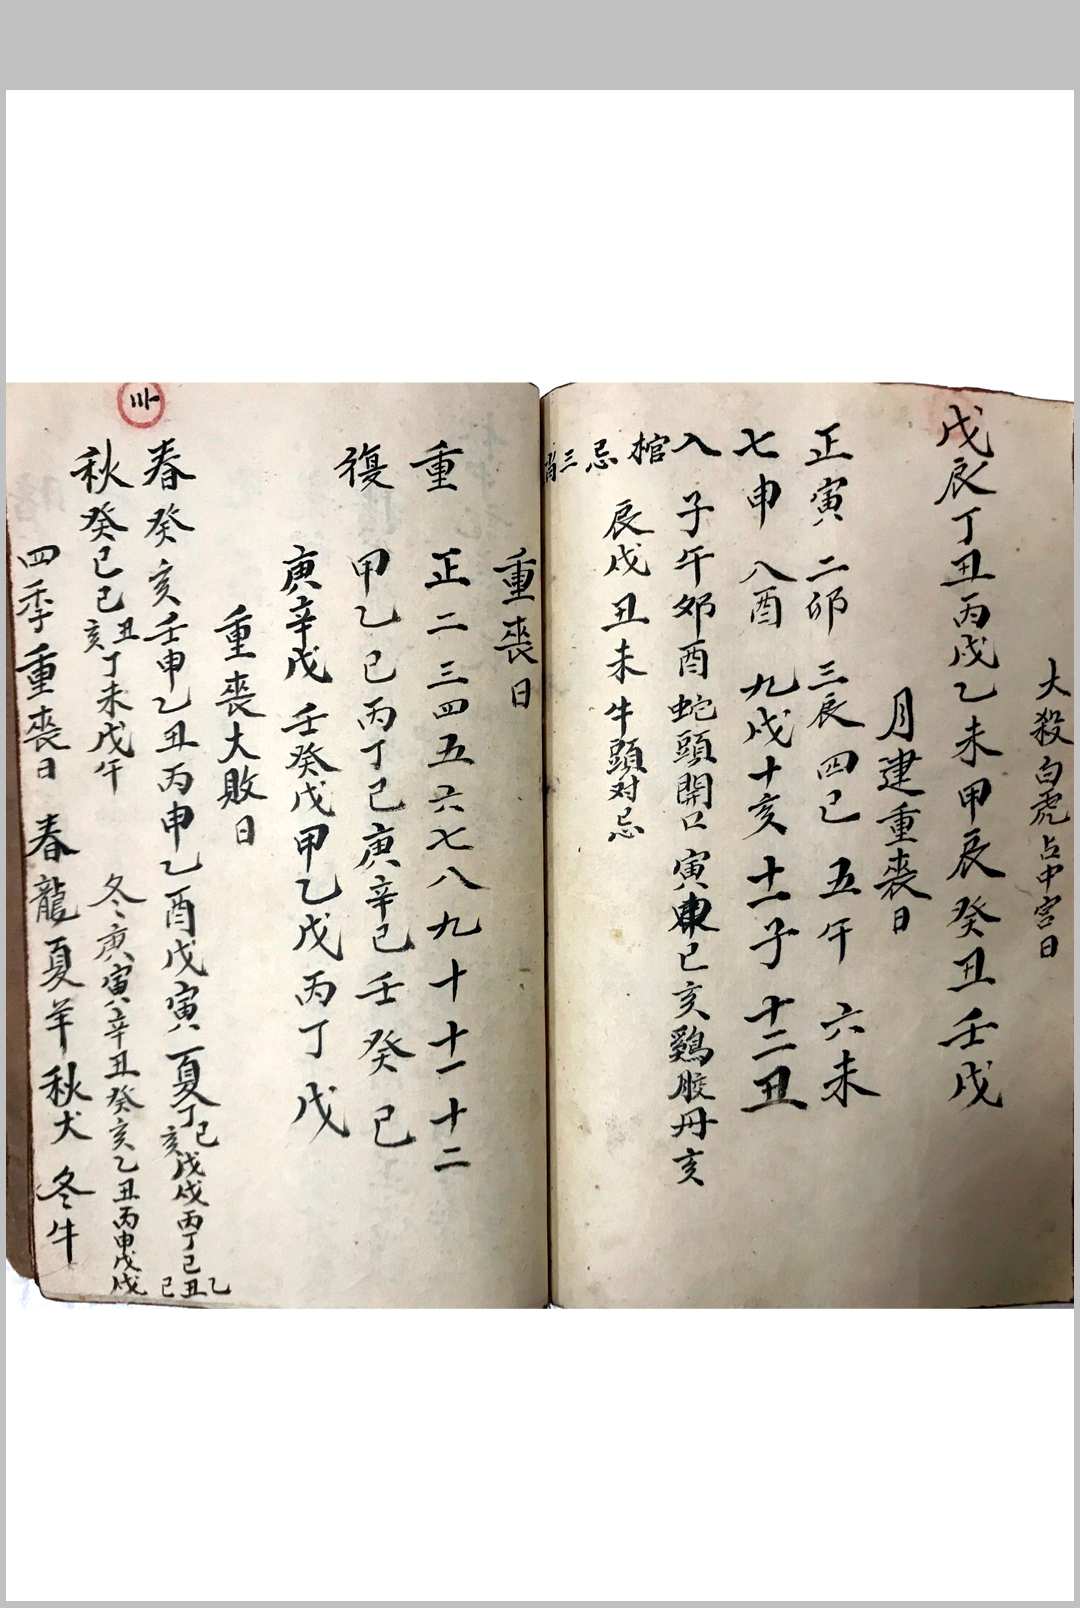 大殺白虎占中宮日
戊辰丁丑丙戌乙未甲辰癸丑壬戌
月建重喪日
正寅 二卯 三辰 四巳 五午 六未
七申 八酉 九戌 十亥 十一子 十二丑
入棺忌三肖
子午卯酉蛇頭開口 寅東巳亥鷄胶丹亥
辰戌丑未牛頭对忌
重喪日
重 正二三四五六七八九十十一十二
復 甲乙巳丙丁己庚辛己壬癸己
庚辛戊壬癸戊甲乙戊丙丁戊
重喪大敗日
春癸亥壬申乙丑丙申乙酉戊寅 夏丁亥己戊戌丙丁己己丑乙
秋癸巳己亥丑丁未戊午 冬庚寅辛丑癸亥乙丑丙申戊戌
四季重喪日 春龍夏羊秋犬冬牛